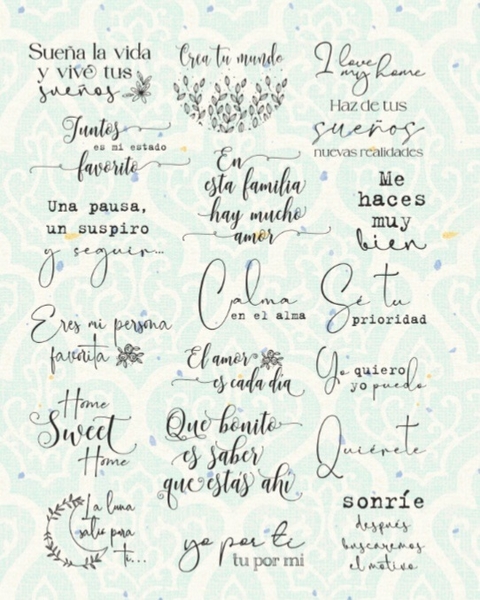 Sueña la vida
y vive tus
sueños
Crea tu mundo
I love
my home
Juntos
es mi estado
favorito
Haz de tus
sueños
nuevas realidades
En
esta familia
hay mucho
amor
Me
haces
muy
bien
Una pausa,
un suspiro
y seguir...
Calma
en el alma
Sé tu
prioridad
Eres mi persona
favorita
El amor
es cada día
Yo quiero
yo puedo
Home
Sweet
Home
Que bonito
es saber
que estás ahí
Quiérete
La luna
salió para
ti...
yo por ti
tu por mi
sonríe
después
buscaremos
el motivo